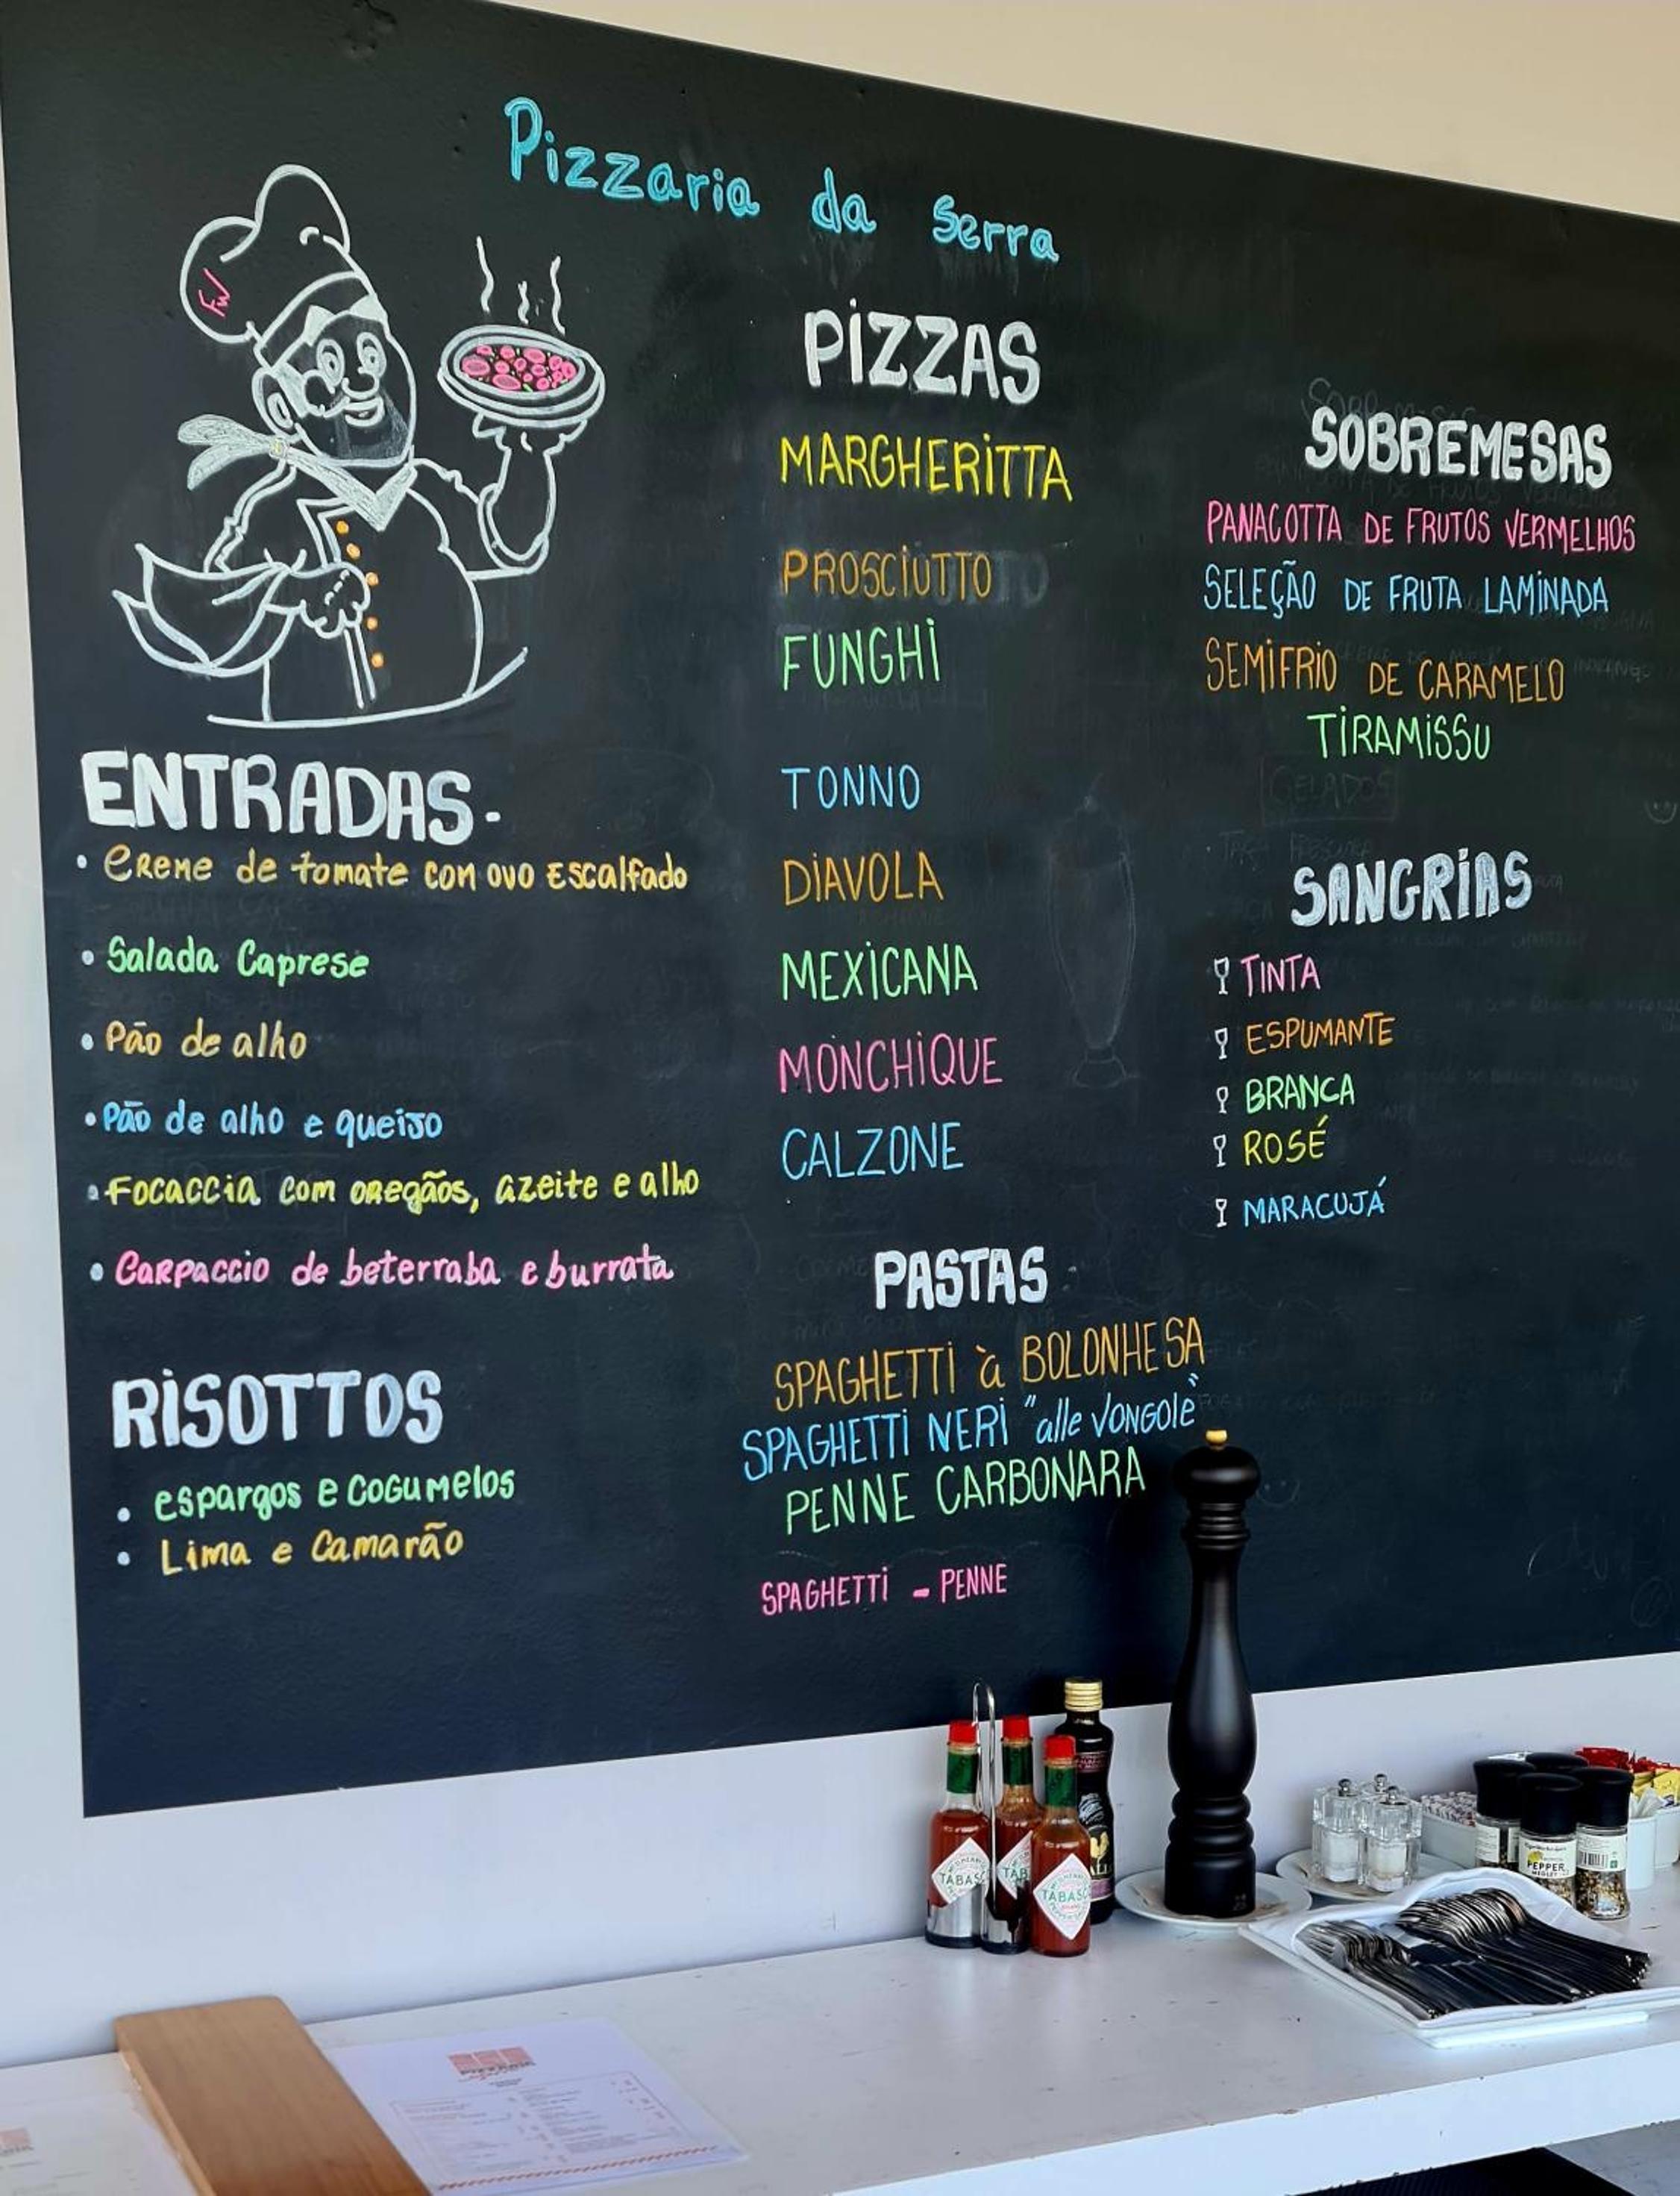 Pizzaria da Serra
FW
ENTRADAS.
• Creme de tomate com ovo Escalfado
• Salada Caprese
• Pão de alho
• Pão de alho e queijo
• Focaccia com oregãos, azeite e alho
• Carpaccio de beterraba e burrata
RISOTTOS
• espargos e cogumelos
• Lima e Camarão
PIZZAS
MARGHERITTA
PROSCIUTTO
FUNGHI
TONNO
DIAVOLA
MEXICANA
MONCHIQUE
CALZONE
PASTAS
SPAGHETTI à BOLONHESA
SPAGHETTI NERI "alle VONGOLE"
PENNE CARBONARA
SPAGHETTI - PENNE
SOBREMESAS
PANACOTTA DE FRUTOS VERMELHOS
SELEÇÃO DE FRUTA LAMINADA
SEMIFRIO DE CARAMELO
TIRAMISSU
GELADOS
SANGRIAS
TINTA
ESPUMANTE
BRANCA
ROSÉ
MARACUJÁ
TABASCO
PEPPER